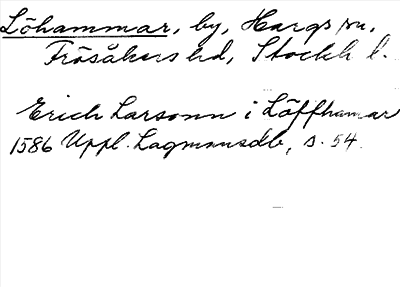 Löhammar, by, Hargs sn,
Frösåkers hd, Stockh l.
Erich Larsonn i Löffhamar
1586 Uppl. Lagmansdb, s. 54.